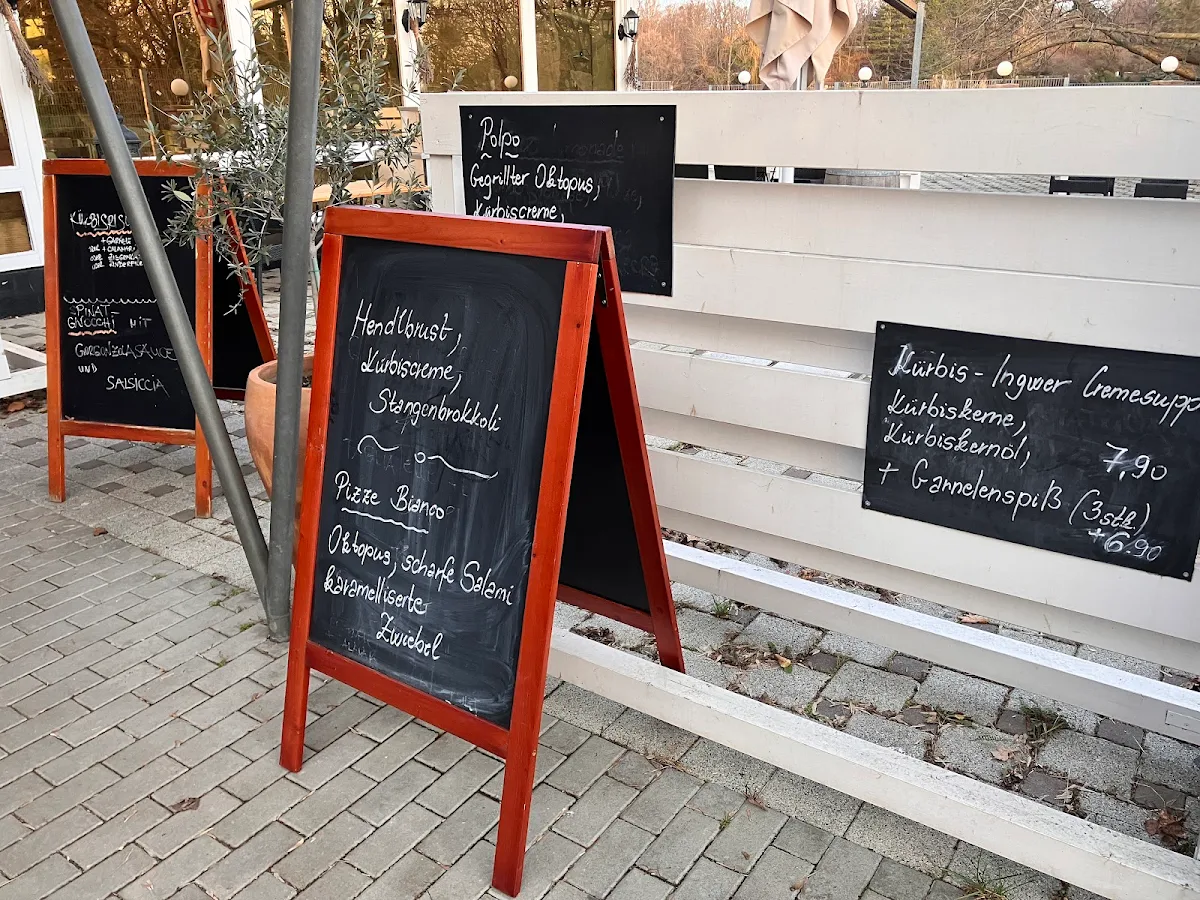 + GARNELE
SPINAT-
GNOCCHI MIT
GORGONZOLASAUCE
UND
SALSICCIA
Polpo
Gegrillter Oktopus,
Kürbiscreme,
Hendlbrust,
Kürbiscreme,
Stangenbrokkoli
Pizze Bianco
Oktopus, scharfe Salami
karamelliserte
Zwiebel
Kürbis - Ingwer Cremesupp
Kürbiskerne,
Kürbiskernöl,
7,90
+ Garnelenspiß (3stk.)
+6.90